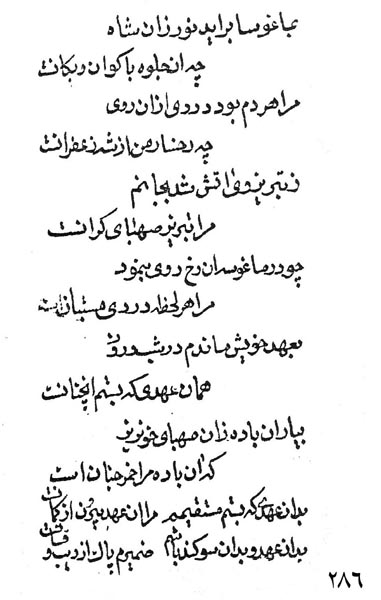 برآید نور زان شاه
چه ان جلوه
مرا هردم بود دردی ازان روی
چه رخسار من ازشه زعفرانت
ز تبریز وی اتش شد بجانم
مرا تبریز صهبای کرانست
چو در ماغوسه ان رخ روی بنمود
مرا هر لحظه دردی
بعهد خویش ماندم در شب و روز
همان عهدی که بستم انچنانت
بیار ان باده زان صهبای خونریز
که ان باده مرا خمر جنان است
بدان عهدی که بستم مستقیمم مرا ان عهد بیرون از کمانت
بدان عهد و بدان سوکند باشم ضمیرم پاک از ریب و
۲۸۶